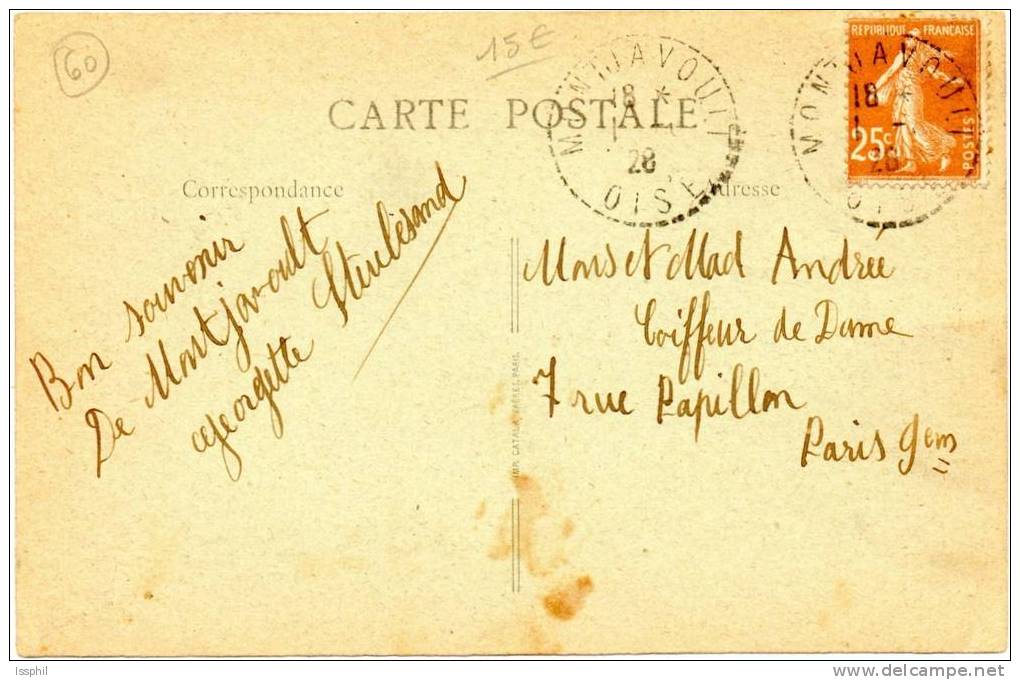 60
15€
CARTE POSTALE
Correspondance
Adresse
MONTJAVOULT
18 *
1 - 1
28
OISE
MONTJAVOULT
18 *
1 - 1
28
OISE
REPUBLIQUE FRANÇAISE
25c
POSTES
Bon souvenir
De Montjavoult
Georgette
Mons et Mad Andrée
Coiffeur de Dame
7 rue Papillon
Paris 9em
IMP. CATALA FRÈRES, PARIS
Issphil
delcampe.net